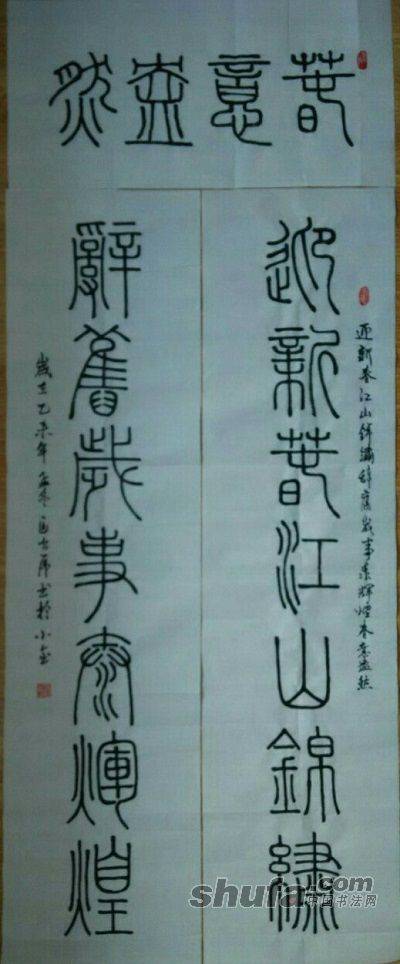 萅意盎然
迎新萅江山錦繡
辭舊歲事泰輝煌
迎新春江山錦繡辭舊歲事泰輝煌春意盎然
歲在乙未年孟冬
書於小
shufa.com
中国书法网